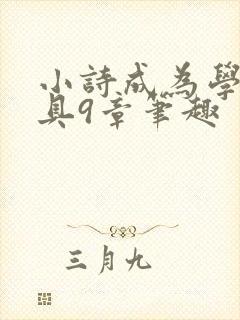 小詩成為學
具9章筆趣
三月九